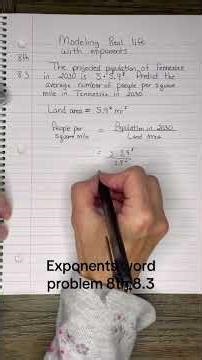 Modeling Real life
with exponents
8th
8.3
The projected population of Tennessee
in 2030 is 5 · 5.9⁸. Predict the
average number of people per square
mile in Tennessee in 2030
Land area = 5.9⁶ mi²
People per
square mile
=
Population in 2030
Land area
=
Exponents word
problem 8th 8.3